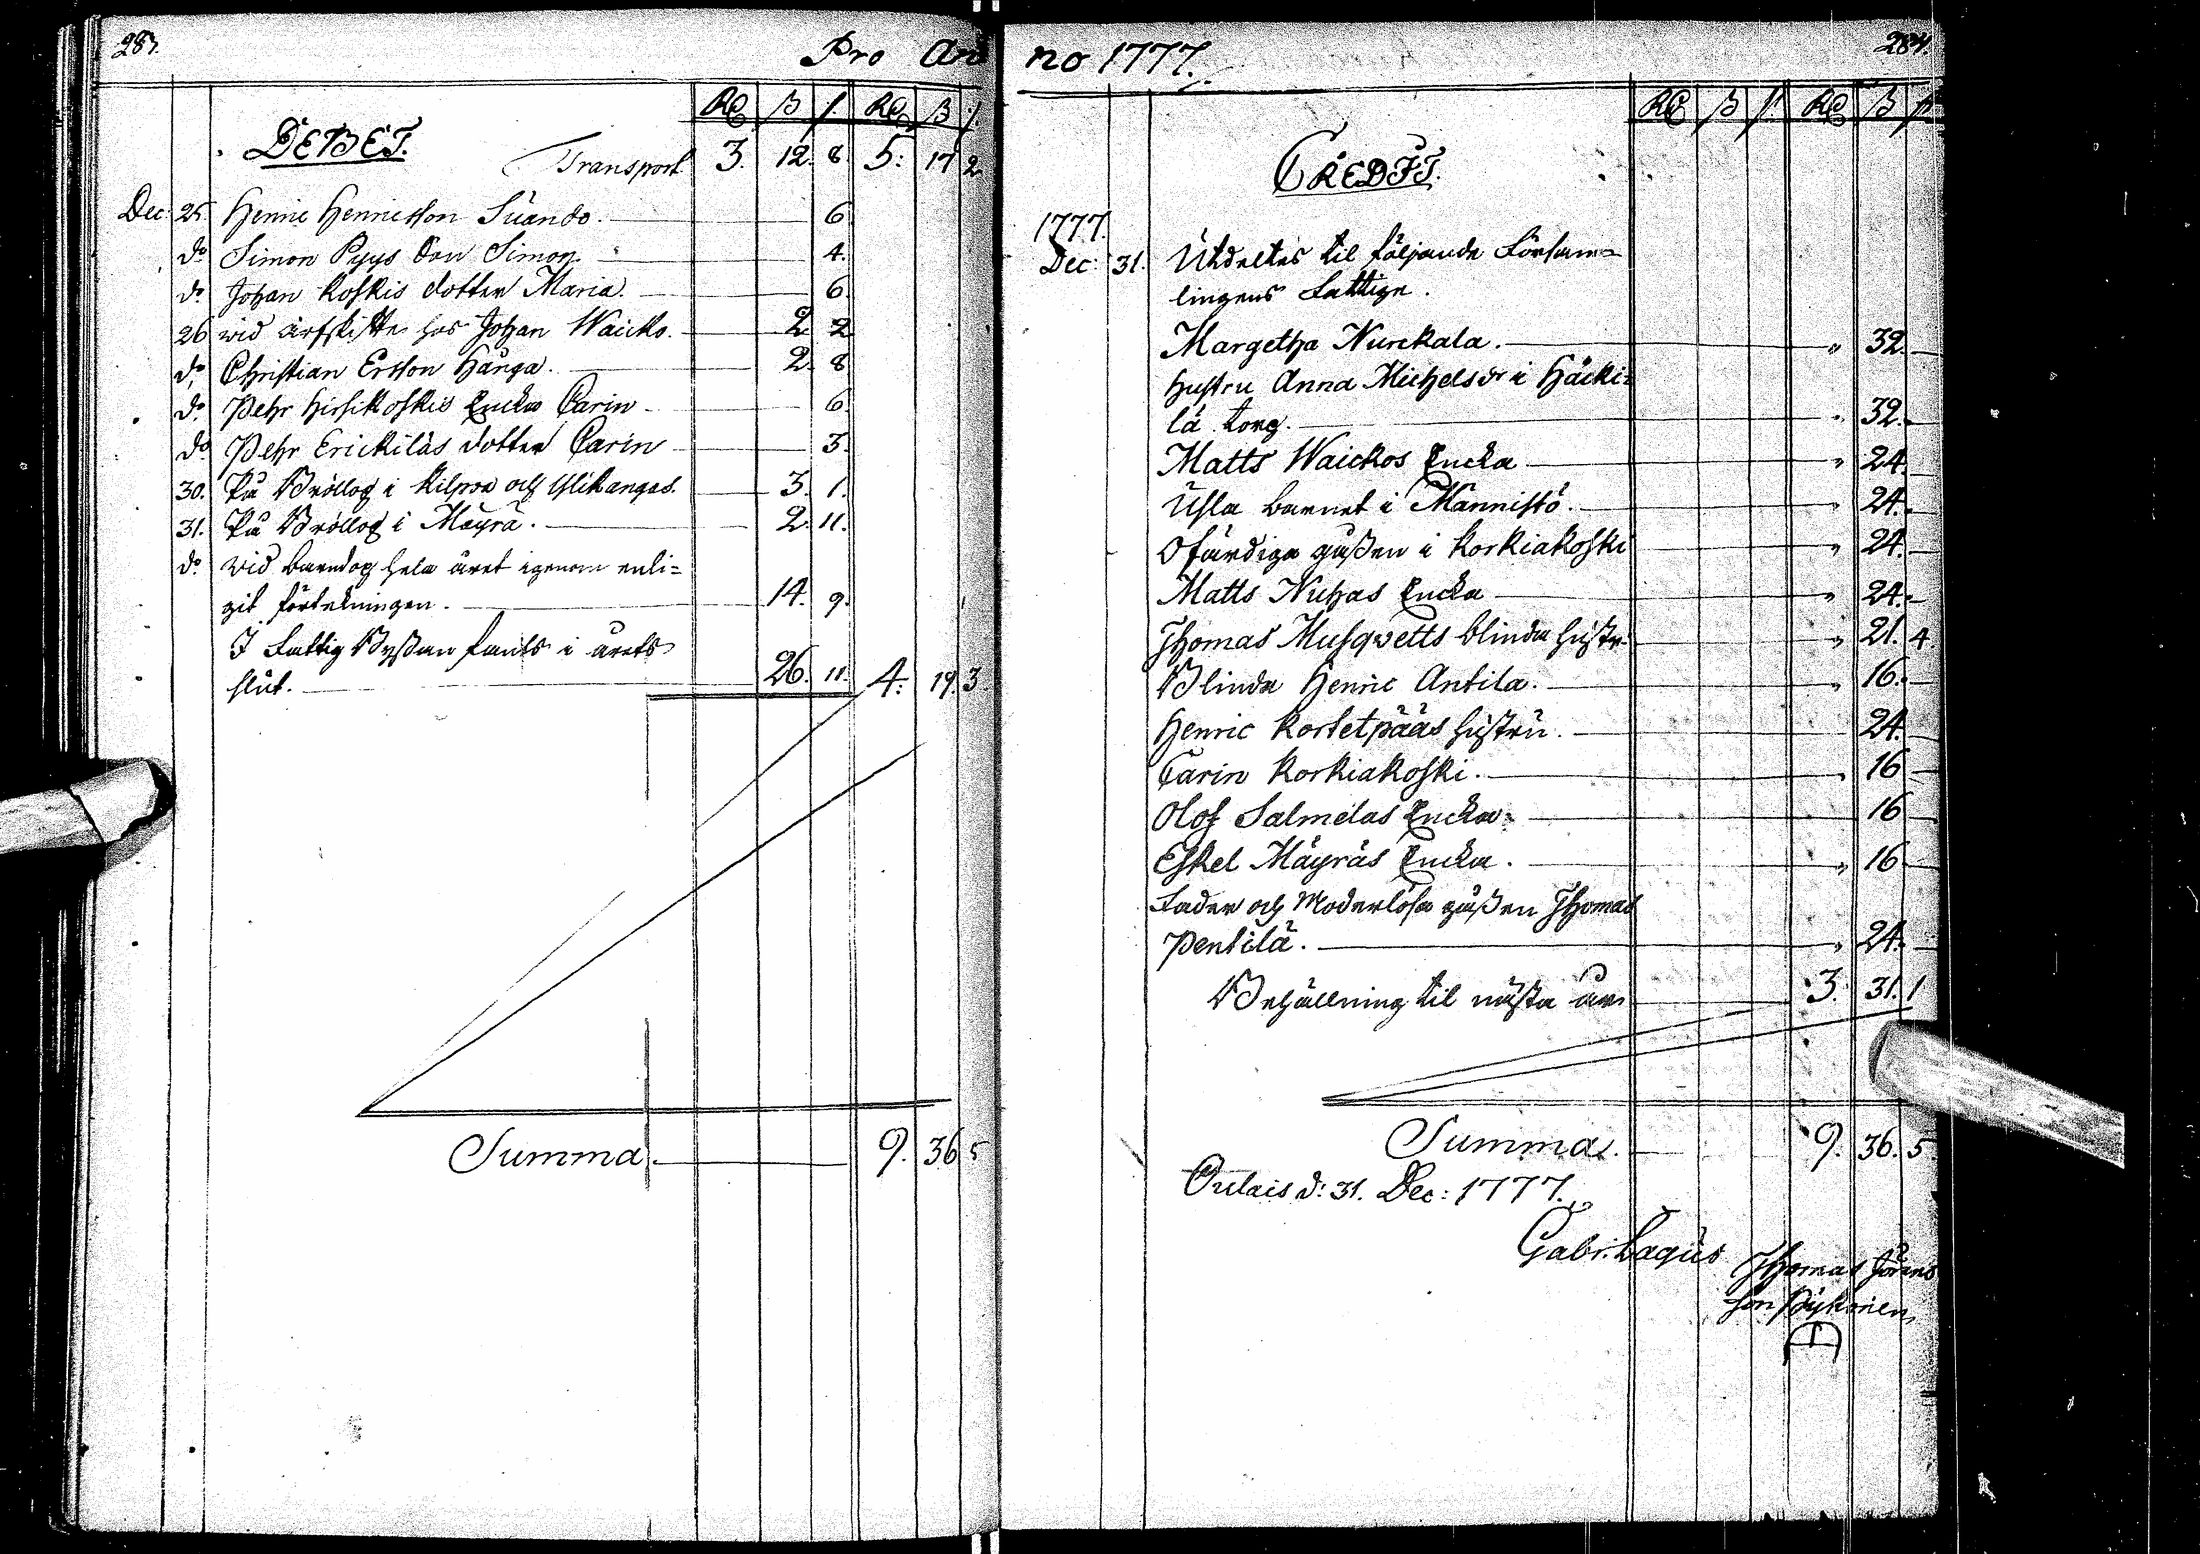 283.
Pro An
DEBET.
Rd ß f. Rd ß f.
Transport 3. 12. 8. 5: 17 2.
Dec: 25 Henric Henricsson Suando. 6.
do Simon Pyys Son Simon. 4.
do Johan Koskis dotter Maria. 6.
26 wid arfskifte hos Johan Waicko. 2. 2
do Christian Ersson Hanga. 2. 8
do Pehr Hirsikoskis Encka Carin 6.
do Pehr Erickiläs dotter Carin 3.
30. På Bröllop i Kilpoa och Ylikangas. 3. 1.
31. På Bröllop i Mäyrä. 2. 11.
do wid barndop hela året igenom enli=
git förtekningen. 14. 9.
I Fattig Byssan fants i årets
slut. 26. 11. 4: 19. 3.
Summa. 9. 36 5
no 1777.
284.
Rd ß f. Rd ß f.
CREDIT.
1777.
Dec: 31. Utdeltes til följande Försam=
lingens Fattige.
Margetha Nurckala. " 32.
hustru Anna Michelsdr i Häcki=
lä torg. " 32.
Matts Waickos Encka " 24.
Usla barnet i Männistö. " 24.
Ofärdiga gåssen i Korkiakoski " 24.
Matts Nuhas Encka " 24.
Thomas Musqwetts blinda hustr: " 21. 4.
Blinda Henric Antila. " 16.
Henric Kortetpääs hustru. 24.
Carin Korkiakoski. " 16
Olof Salmelas Encka. 16
Eskel Mäyräs Encka. " 16
Fader och Moderlösa gåssen Thomas
Pentilä. " 24.
Behållning til nästa år 3. 31. 1
Summa. 9. 36. 5.
Oulais d: 31. Dec: 1777.
Gabr. Lagus
Thomas Jörans
son Pykönen